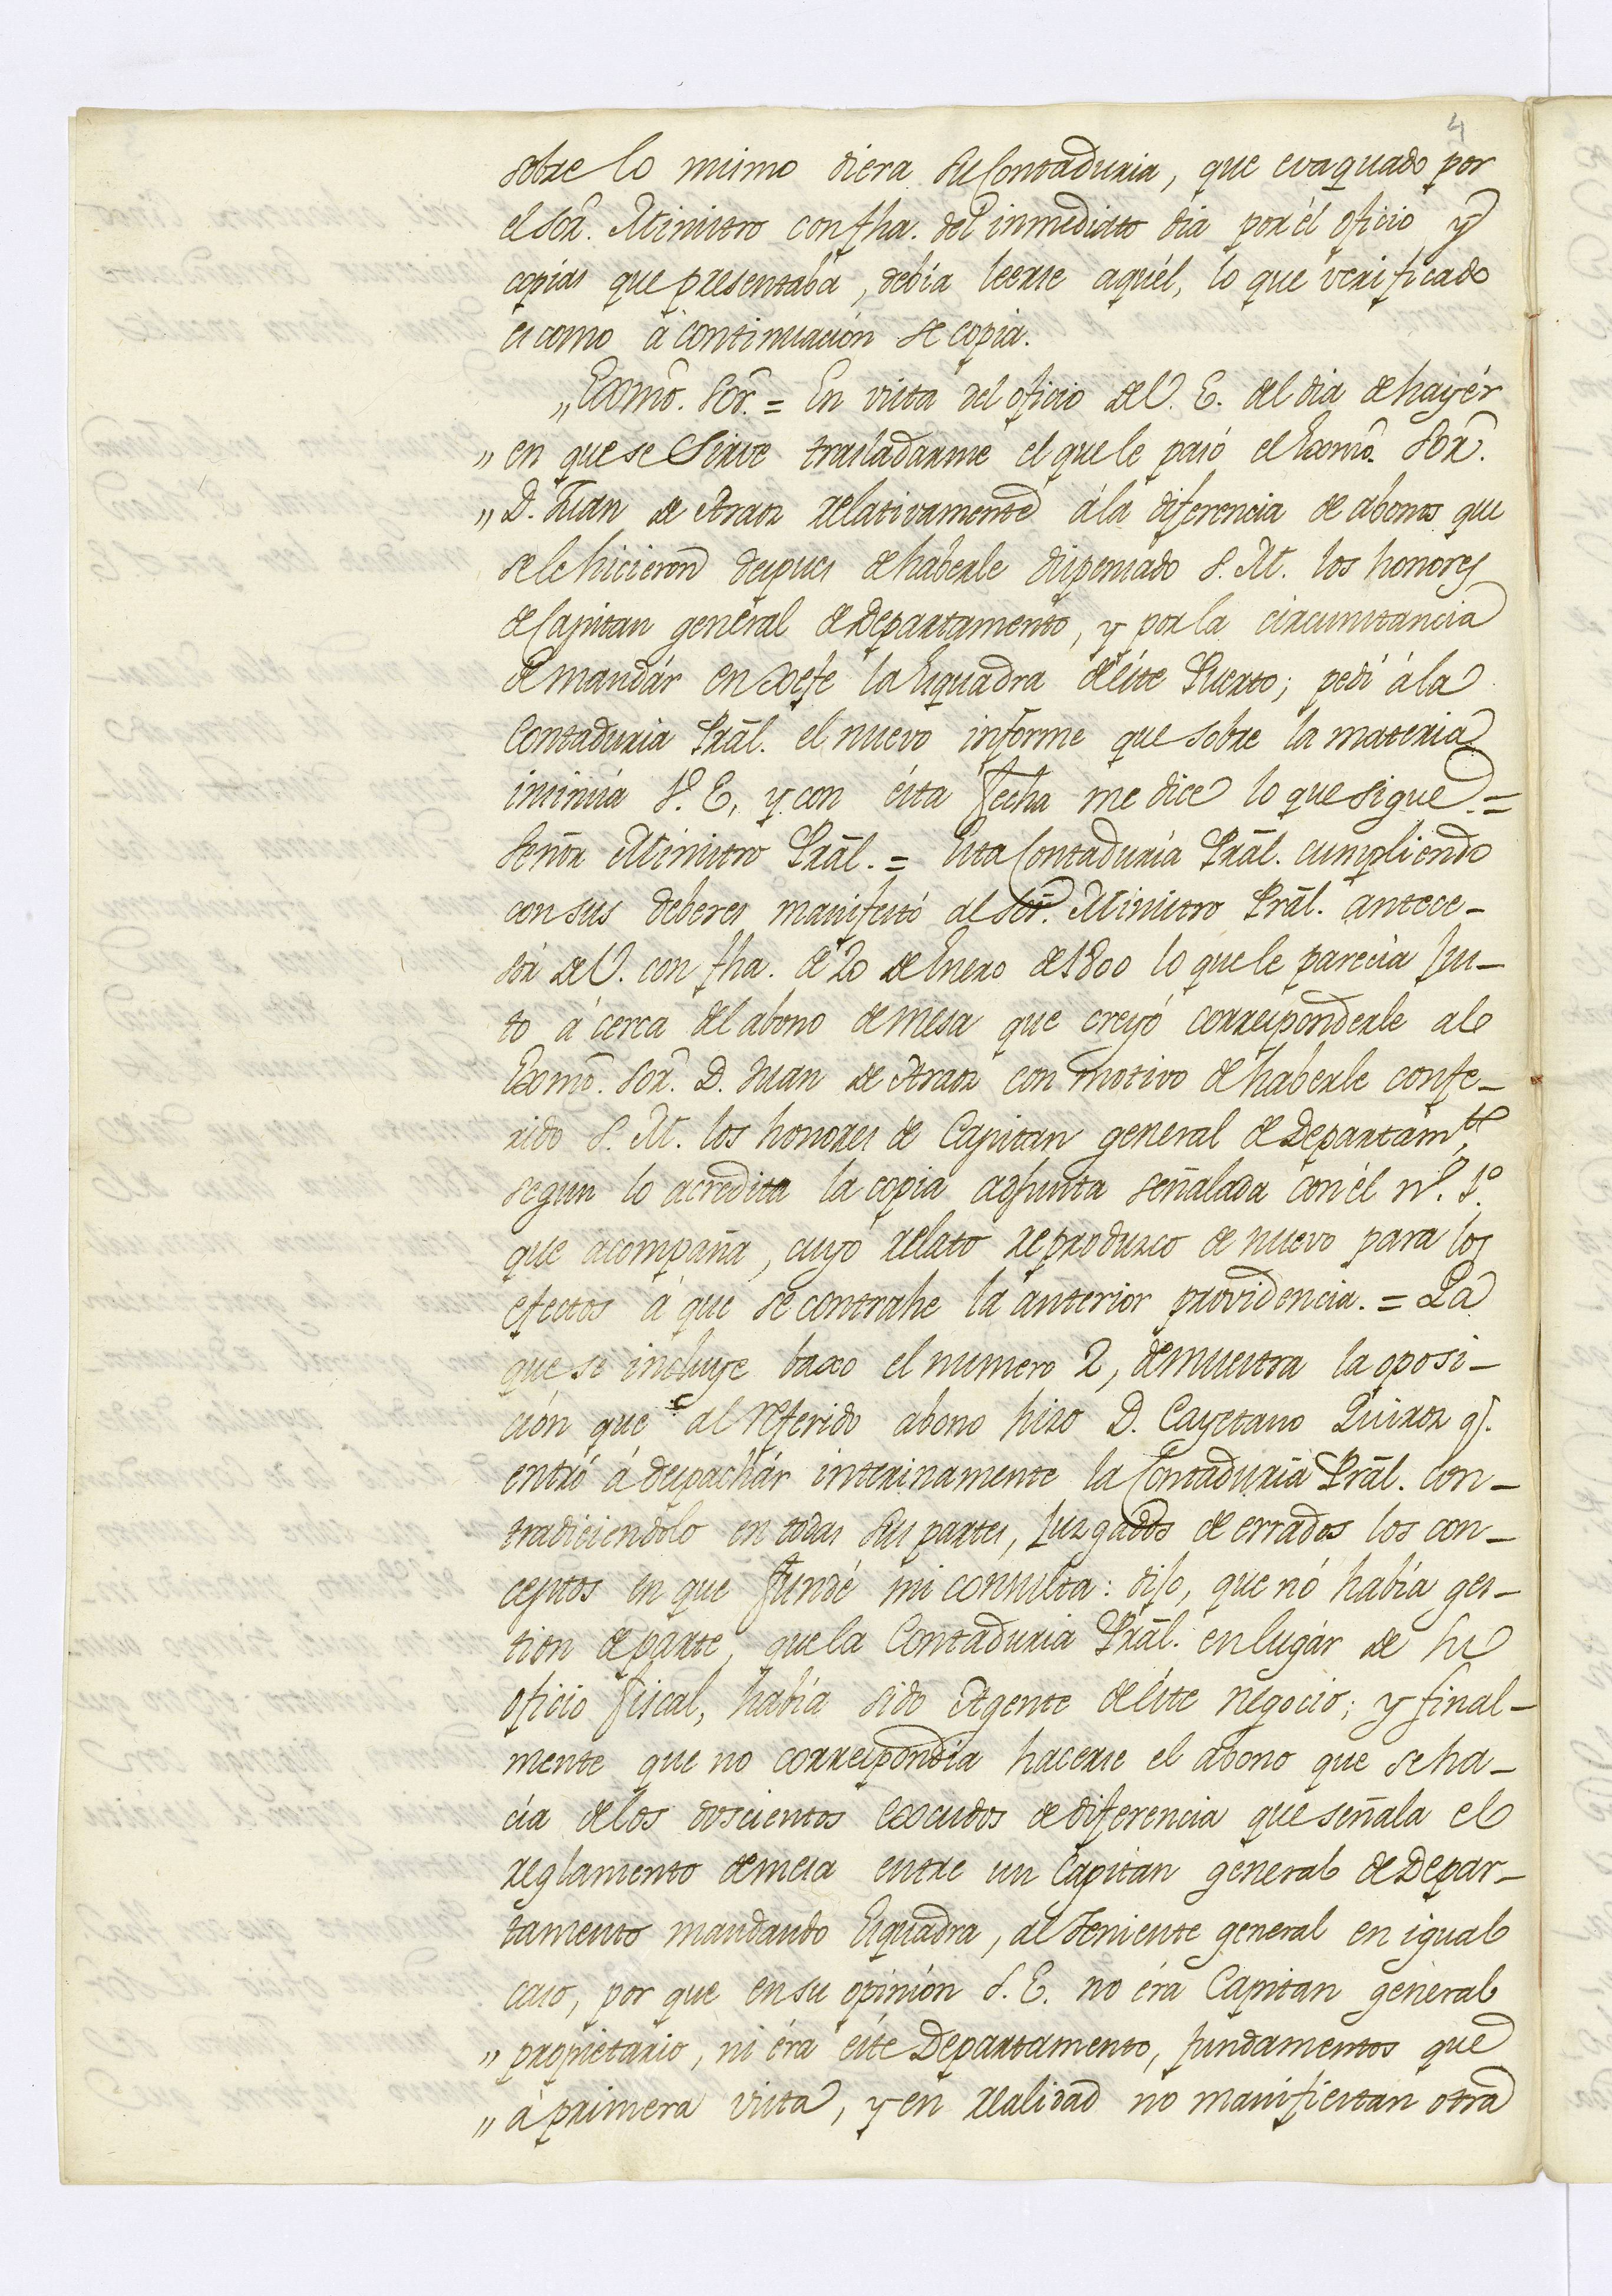 4
sobre lo mismo diera su Contaduria, que evaquado por
el Sor. Ministro con fha. del inmediato dia por él oficio y
copias que presentaba, debia leerse aquél, lo que verificado
es como á continuación se copia.
„Exmô. Sôr. = En vista del oficio de V. E. del dia de hayér
„ en que se Sirve trasladarme el que le pasó el Exmô. Sôr.
„ D. Juan de Araoz relativamente á la diferencia de abonos que
se le hicieron despues de haberle dispensado S. M. los honores
de Capitan general de Departamento, y por la circunstancia
de mandár en xefe la Esquadra de éste Puerto; pedí á la
Contaduria Prãl. el nuevo informe que sobre la materia
insinúa S. E, y con ésta fecha me dice lo que sigue. =
Señor Ministro Prãl. = Esta Contaduria Prãl. cumpliendo
con sus deberes manifestó al Sôr. Ministro Prãl. antece-
sor de V. con fha. de 20 de Enero de 1800 lo que le parecia jus-
to á cerca del abono de mesa que creyó corresponderle al
Exmô. Sôr. D. Juan de Araoz con motivo de haberle confe-
rido S. M. los honores de Capitan general de Departam.to
segun lo acredita la copia adjunta señalada con él nº. 1º.
que acompaña, cuyo relato reproduzco de nuevo para los
efectos á que se contrahe la anterior providencia. = La
que se incluye baxo el numero 2, demuestra la oposi-
ción que al referido abono hizo D. Cayetano Quiroz q.
entró á despachár interinamente la Contaduria Prãl. con-
tradiciendolo en todas sus partes, juzgados de errados los con-
ceptos en que fundé mi consulta: dijo, que nó habia ges-
tion de parte, que la Contaduria Prãl. en lugár de su
oficio fiscal, habia sido Agente de éste negocio; y final-
mente que no correspondia hacerse el abono que se ha-
cia de los doscientos escudos de diferencia que señala el
reglamento de mesa entre un Capitan general de Depar-
tamento mandando Esquadra, al Teniente general en igual
caso, por que en su opinión S. E. no éra Capitan general
„ proprietario, ni éra éste Departamento, fundamentos que
„ á primera vista, y en realidad no manifiestan otra